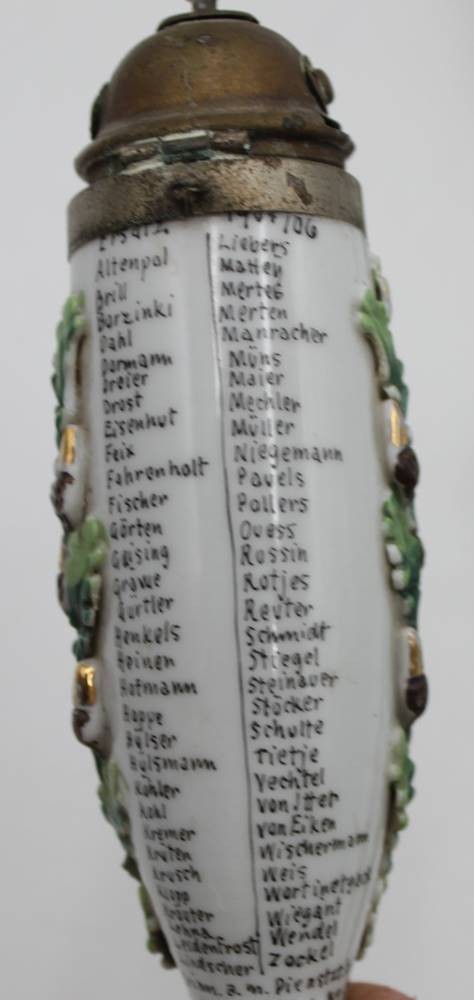 Ersatz 1904/06
Altenpol
Brill
Borzinki
Dahl
Dormann
Dreier
Drost
Eisenhut
Feix
Fahrenholt
Fischer
Görten
Geising
Gravue
Gürtler
Henkels
Heinen
Hofmann
Hoppe
Hülser
Hülsmann
Köhler
Kohl
Kremer
Kruten
Krusch
Kopp
Kräuter
Lehna
Leidenfrost
Lindscher
Liebers
Mattey
Mertes
Merten
Manracher
Müns
Maier
Mechler
Müller
Niegemann
Pauels
Pollers
Quess
Rossin
Rotjes
Reuter
Schmidt
Stiegel
Steinauer
Stöcker
Schulte
Tietje
Vechtel
von Itter
van Eiken
Wischermann
Weis
Wiegant
Wendel
Zockel
a. m. Dienstz